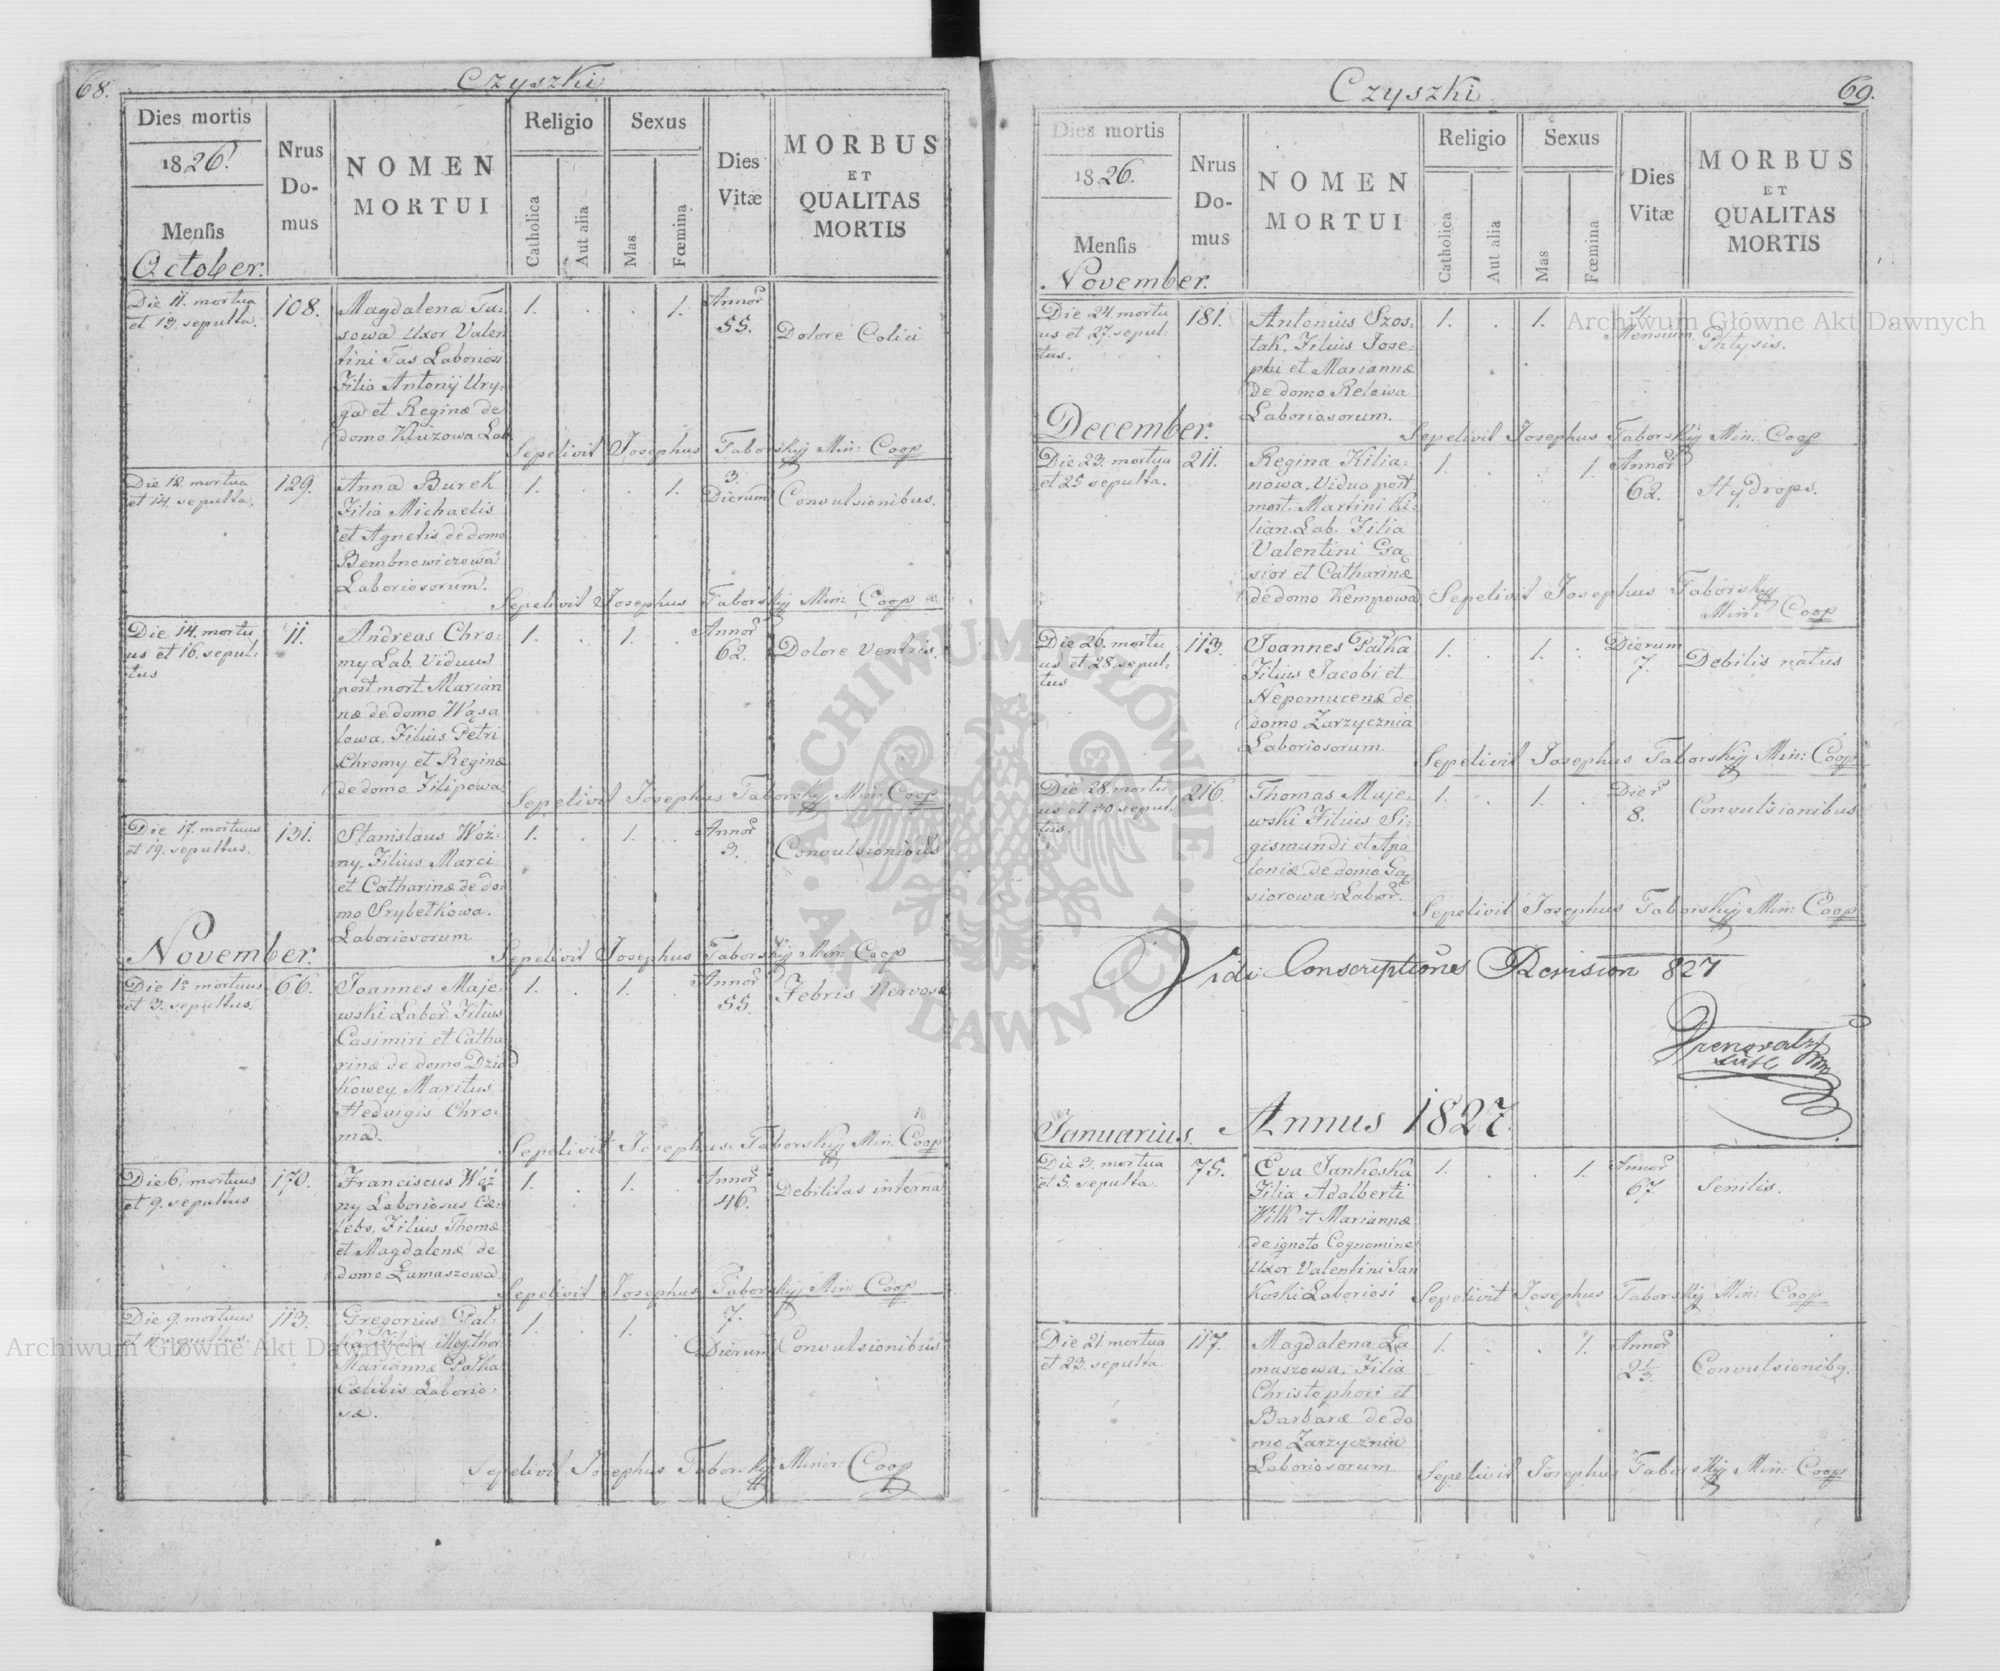 68.
Czyszki
Dies mortis
1826.
Mensis
October.
Nrus
Do-
mus
NOMEN
MORTUI
Religio
Catholica
Aut alia
Sexus
Mas
Fœmina
Dies
Vitæ
MORBUS
ET
QUALITAS
MORTIS
Die 11. mortua
et 13. sepulta.
108.
Magdalena Ta-
sowa Uxor Valen
tini Tas Laboriosi
Filia Antonij Ury-
ga et Reginæ de
domo Kluzowa Lab
1. . . 1.
Annor
55.
Dolore Colici
Sepelivit Josephus Taborskij Min: Coop
Die 12 mortua
et 14. sepulta.
129.
Anna Burek
Filia Michaelis
et Agnetis de domo
Bembnowiczowa
Laboriosorum.
1. . . 1.
3.
Dierum
Convulsionibus.
Sepelivit Josephus Taborskij Min: Coop
Die 14. mortu
us et 16. sepul-
tus
11.
Andreas Chro-
my Lab. Viduus
post mort. Marian
næ de domo Wąsa
lowa, Filius Petri
Chromy et Reginæ
de domo Filipowa
1. . 1. .
Annor
62.
Dolore Ventris.
Sepelivit Josephus Taborskij Min: Coop
Die 17. mortuus
et 19. sepultus.
131.
Stanislaus Woź-
ny, Filius Marci
et Catharinæ de do-
mo Srybełkowa.
Laboriosorum
1. . 1. .
Annor
3.
Convulsionibus
Sepelivit Josephus Taborskij Min: Coop
November.
Die 1º mortuus
et 3. sepultus.
66.
Joannes Maje-
wski Labor. Filius
Casimiri et Catha
rinæ de domo Dziad
kowey, Maritus
Hedvigis Chro-
ma.
1. . 1. .
Annor
55.
Febris Nervosa
Sepelivit Josephus Taborskij Min: Coop
Die 6. mortuus
et 9. sepultus
170.
Franciscus Woź
ny Laboriosus Cæ-
lebs, Filius Thomæ
et Magdalenæ de
domo Łumaszowa
1. . 1. .
Annor
46.
Debilitas interna
Sepelivit Josephus Taborskij Min: Coop
Die 9. mortuus
et 11 sepultus.
113.
Gregorius Pał-
ka, Filius illeg. thor.
Mariannæ Pałka
Cælibis Laborio-
sæ.
1. . 1. .
7.
Dierum
Convulsionibus
Sepelivit Josephus Taborskij Minor: Coop
69.
Czyszki
Dies mortis
1826.
Mensis
November.
Nrus
Do-
mus
NOMEN
MORTUI
Religio
Catholica
Aut alia
Sexus
Mas
Fœmina
Dies
Vitæ
MORBUS
ET
QUALITAS
MORTIS
Die 24. mortu
us et 27. sepul-
tus.
181.
Antonius Szos-
tak, Filius Jose-
phi et Mariannæ
de domo Relowa
Laboriosorum.
1. . 1.
Mensium
Phtysis.
Sepelivit Josephus Taborskij Min: Coop
December.
Die 23. mortua
et 25 sepulta.
211.
Regina Kilia-
nowa, Vidua post
mort. Martini Ki-
lian. Lab. Filia
Valentini Gą
sior et Catharinæ
de domo Kempowa
1. . . 1.
Annor
62.
Hydrops.
Sepelivit Josephus Taborskij
Min: Coop
Die 26. mortu
us et 28. sepul-
tus
113.
Joannes Pałka
Filius Jacobi et
Nepomucenæ de
domo Zarzycznia
Laboriosorum
1. . 1. .
Dierum
7.
Debilis natus
Sepelivit Josephus Taborskij Min: Coop
Die 28. mortu
us et 30 sepul-
tus.
216.
Thomas Maje-
wski Filius Si-
gismundi et Apo
loniæ de domo Gą
siorowa Labor.
1. . 1. .
Dier
8.
Convulsionibus
Sepelivit Josephus Taborskij Min: Coop
Vidi Conscriptiones Revision 827
Annus 1827.
Januarius.
Die 3. mortua
et 5. sepulta.
75.
Eva Jankoska
Filia Adalberti
Wilk et Mariannæ
de ignoto Cognomine
Uxor Valentini Jan
koski Laboriosi
1. . . 1.
Annor
67.
Senilis.
Sepelivit Josephus Taborskij Min: Coop
Die 21. mortua
et 23. sepulta.
117.
Magdalena Ła
maszowa, Filia
Christophori et
Barbaræ de do
mo Zarzycznia
Laboriosorum
1. . . 1.
Annor
2 1/3.
Convulsionibq.
Sepelivit Josephus Taborskij Min: Coop
Archiwum Główne Akt Dawnych
Archiwum Główne Akt Dawnych
ARCHIWUM GŁÓWNE · AKT DAWNYCH ·